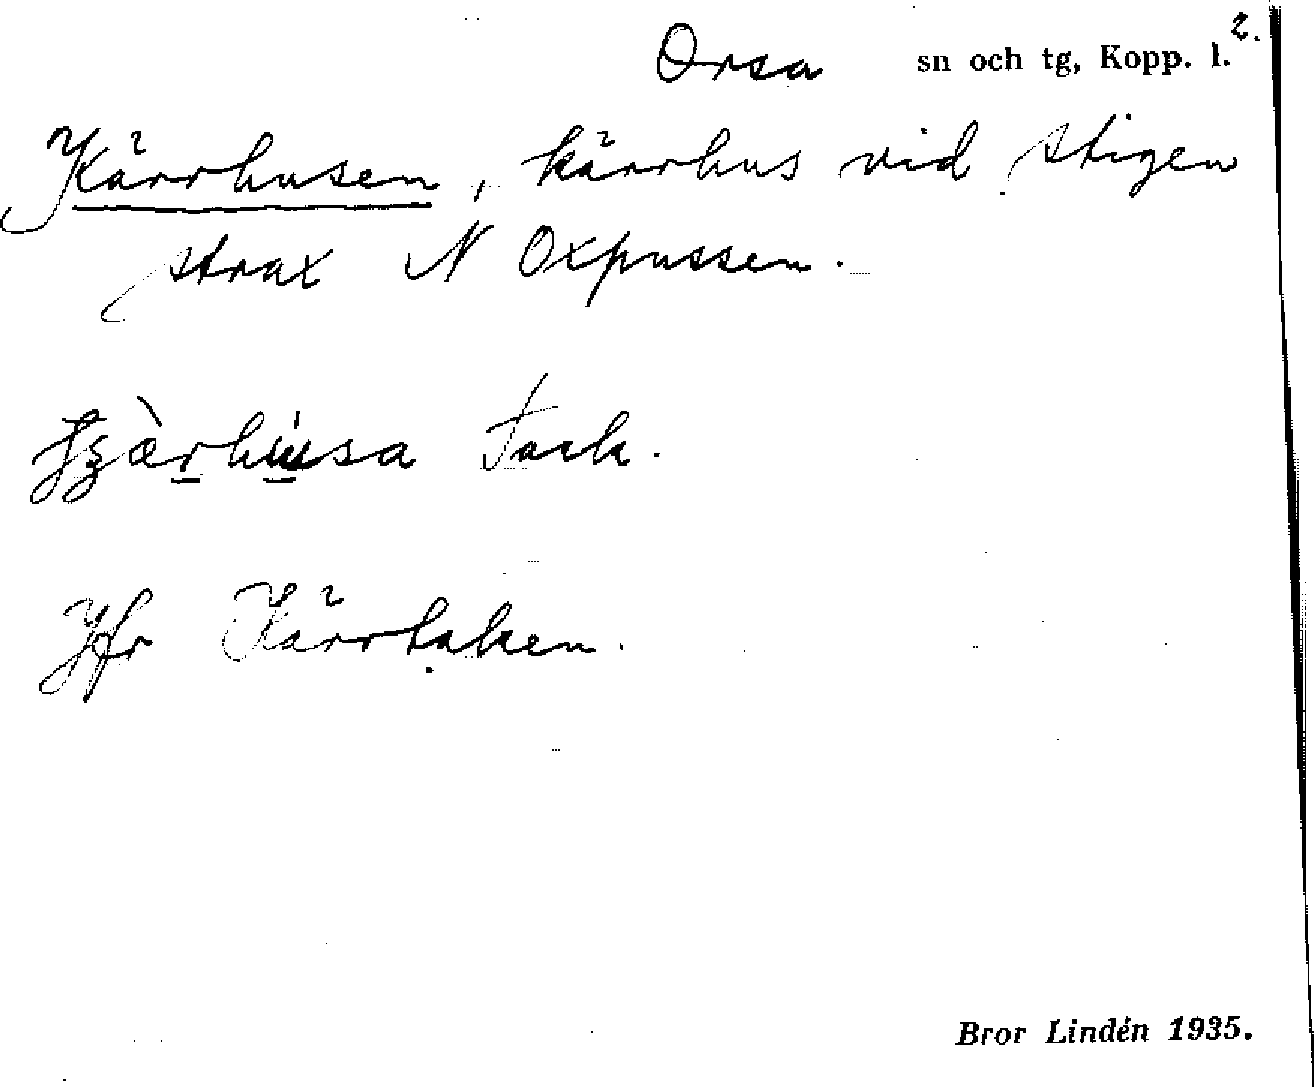 Orsa sn och tg, Kopp. l. 2.
Kärrhusen, kärrhus vid stigen
strax N Oxpussen.
Jfr Kärrtaken.
Bror Lindén 1935.